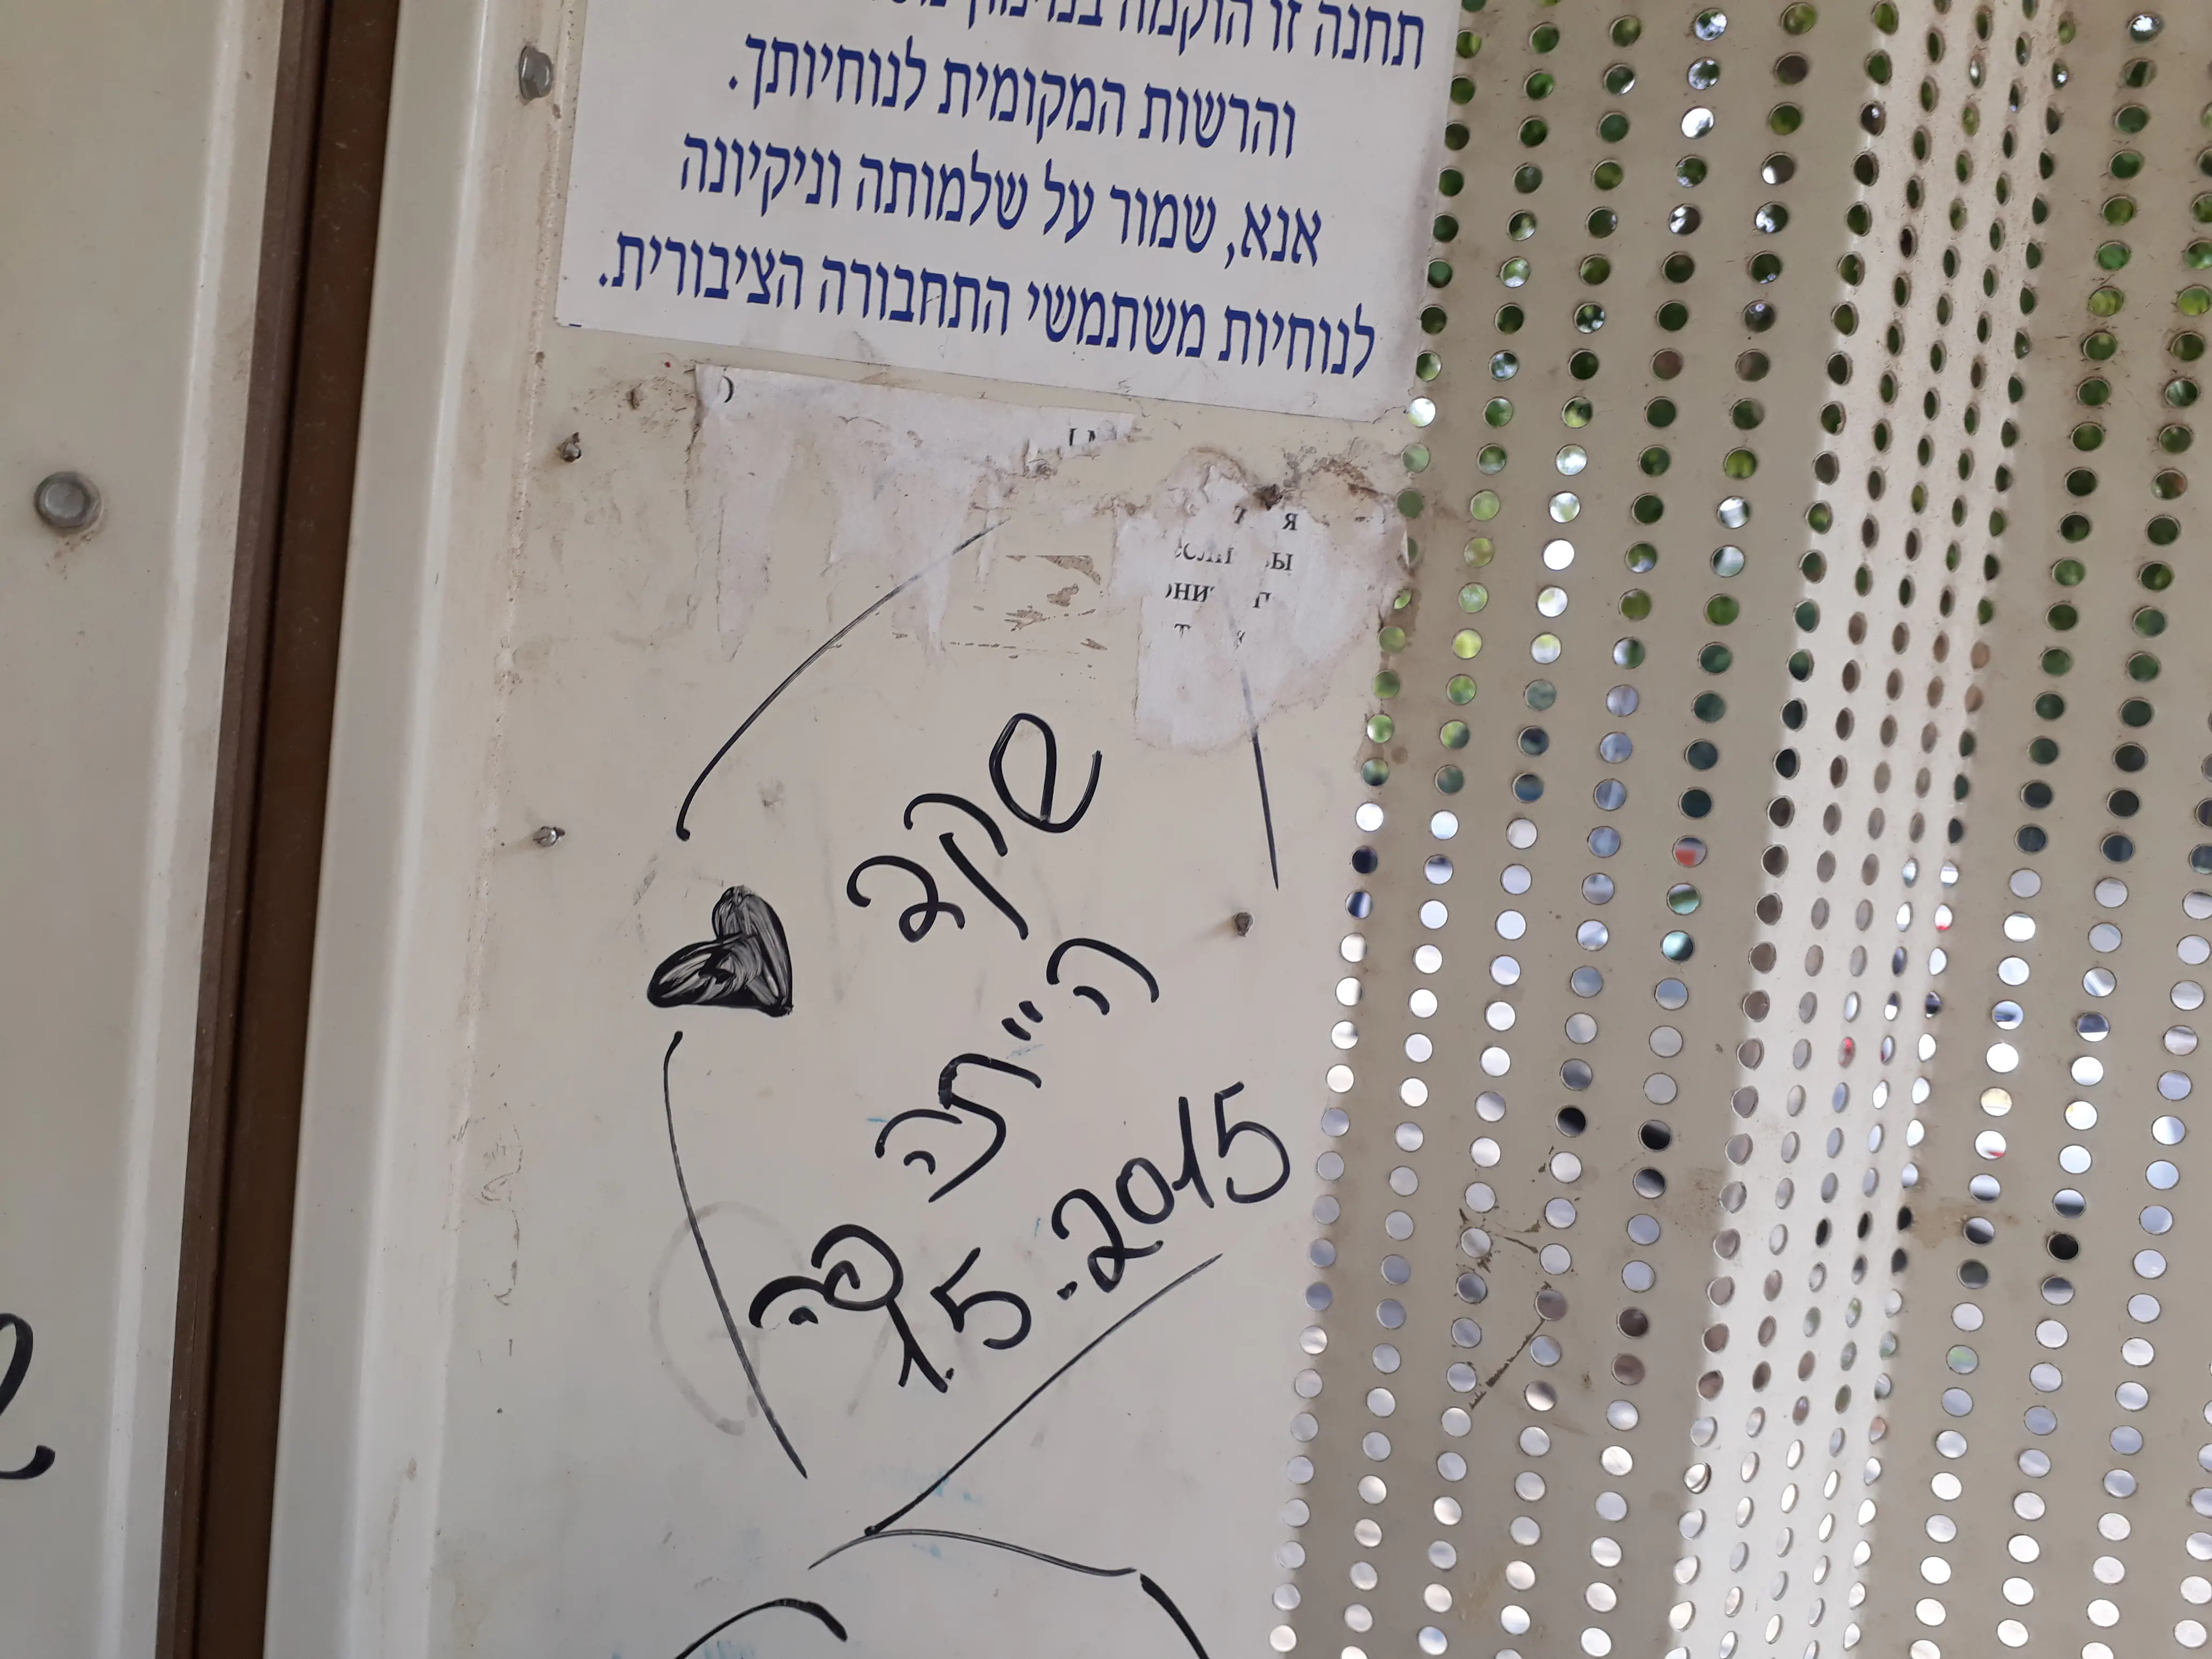 תחנה זו הוקמה במימון
והרשות המקומית לנוחיותך.
אנא, שמור על שלמותה וניקיונה
לנוחיות משתמשי התחבורה הציבורית.
שקב
הייתה
פה
1.5.2015